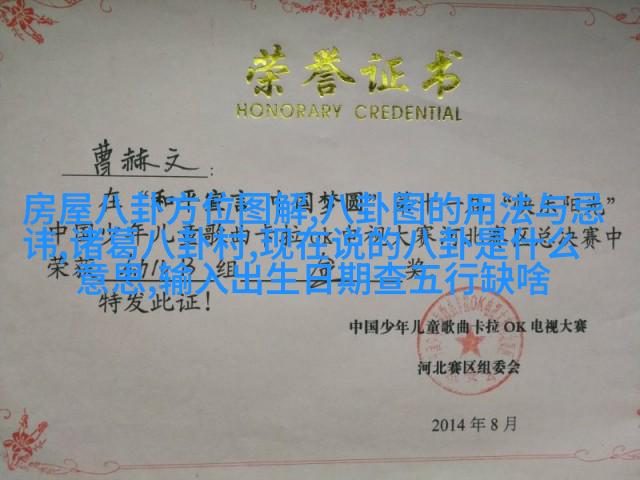 荣誉证书
HONORARY CREDENTIAL
曹赫文:
在“和平宣言 中国梦圆”第十一届“快乐阳光”
房屋八卦方位图解,八卦图的用法与忌
中国少年儿童歌曲卡拉OK电视大赛河北赛区总决赛中
讳,诸葛八卦村,现在说的八卦是什么
荣获 组 奖
意思,输入出生日期查五行缺啥
特发此证!
中国少年儿童歌曲卡拉OK电视大赛
河北赛区组委会
2014年8月